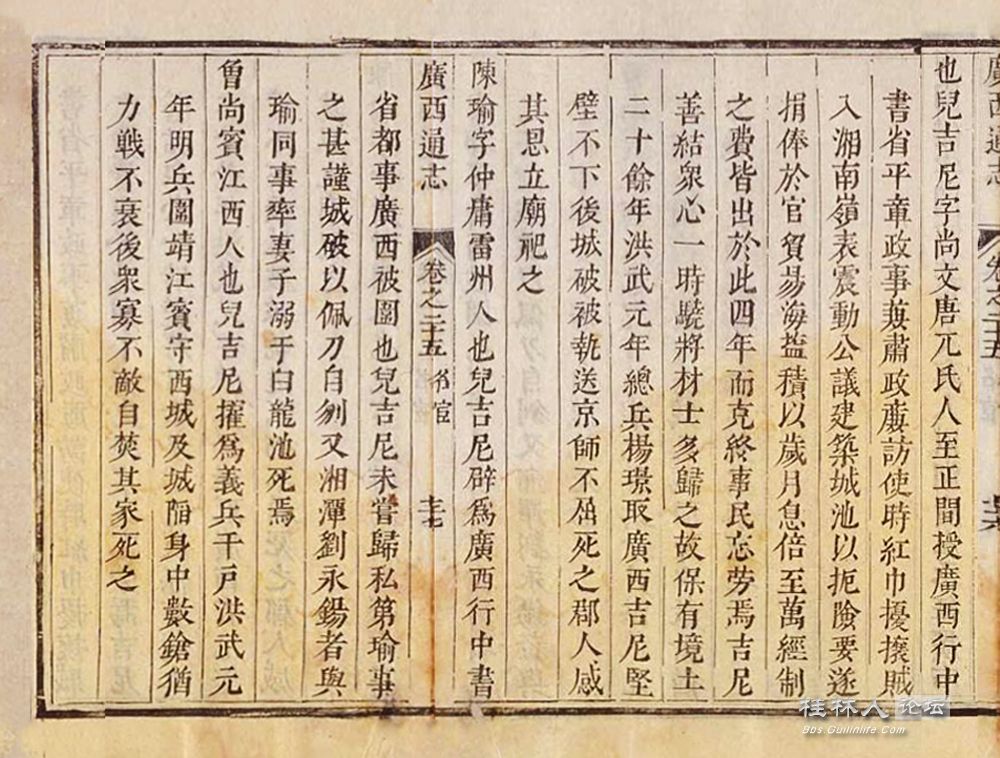 廣西通志
卷之二十五
也兒吉尼字尚文唐兀氏人至正間授廣西行中
書省平章政事兼肅政廉訪使時紅巾擾攘賊
入湘南嶺表震動公議建築城池以扼險要遂
捐俸於官貿易海鹽積以歲月息倍至萬經制
之費皆出於此四年而克終事民忘勞焉吉尼
善結衆心一時驍將材士多歸之故保有境土
二十餘年洪武元年總兵楊璟取廣西吉尼堅
壁不下後城破被執送京師不屈死之郡人感
其恩立廟祀之
陳瑜字仲庸雷州人也兒吉尼辟爲廣西行中書
廣西通志 卷之二十五 名宦
省都事廣西被圍也兒吉尼未嘗歸私第瑜事
之甚謹城破以佩刀自刎又湘潭劉永錫者與
瑜同事率妻子溺于白龍池死焉
魯尚賓江西人也兒吉尼擢爲義兵千戸洪武元
年明兵圍靖江賓守西城及城陷身中數鎗猶
力戰不衰後衆寡不敵自焚其家死之
桂林人论坛
Bbs.Guilinlife.Com